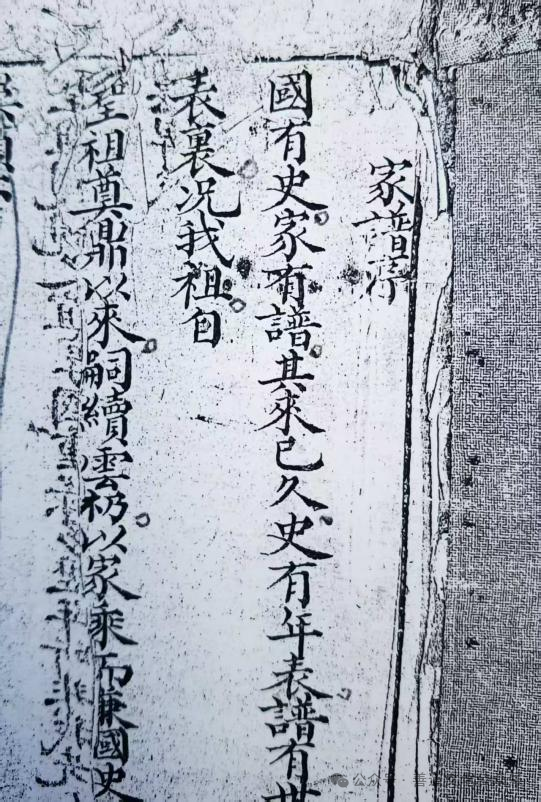 家譜序
國有史家有譜其來已久史有年表譜有世
表裏况我祖自
聖祖奠鼎以來嗣續雲礽以家乘而兼國史
公众号